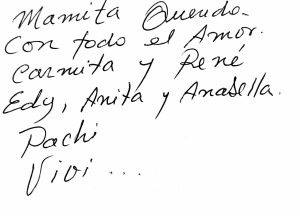 Mamita Querida.
Con todo el Amor.
Carmita y René
Edy, Anita y Anabella.
Pachi
Vivi ...